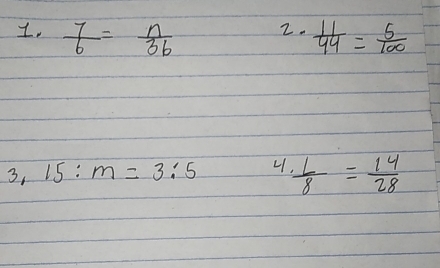 1. 7/6 = n/36
2. 11/44 = 5/100
3, 15 : m = 3 : 5
4. 1/8 = 14/28